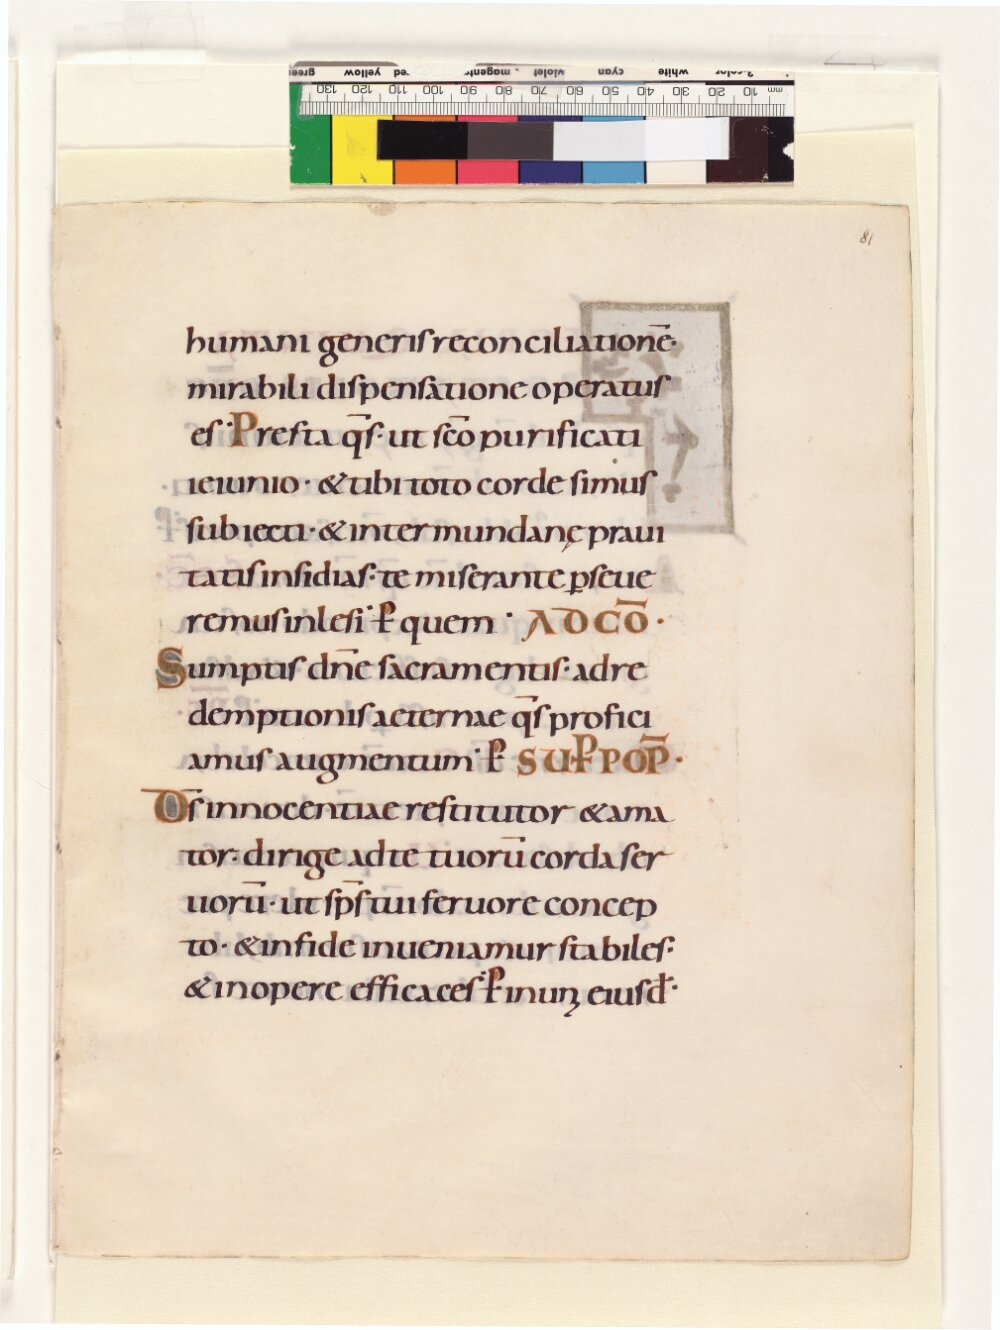 81
humani generis reconciliationē·
mirabili dispensatione operatus
es· Presta q̄s· ut sc̄o purificati
ieiunio· &tibi toto corde simus
subiecti· &inter mundanę praui
tatis insidias· te miserante ꝑseue
remus inlesi· P̄ quem· AD CŌ·
Sumptis dn̄e sacramentis· ad re
demptionis aeternae q̄s profici
amus augmentum· P̄ SUP̄ POP̄·
D̄s innocentiae restitutor &ama
tor· dirige ad te tuorū corda ser
uorū· ut sp̄s tui feruore concep
to· &in fide inueniamur stabiles·
&in opere efficaces· P̄ in unꝫ eiusd̄·